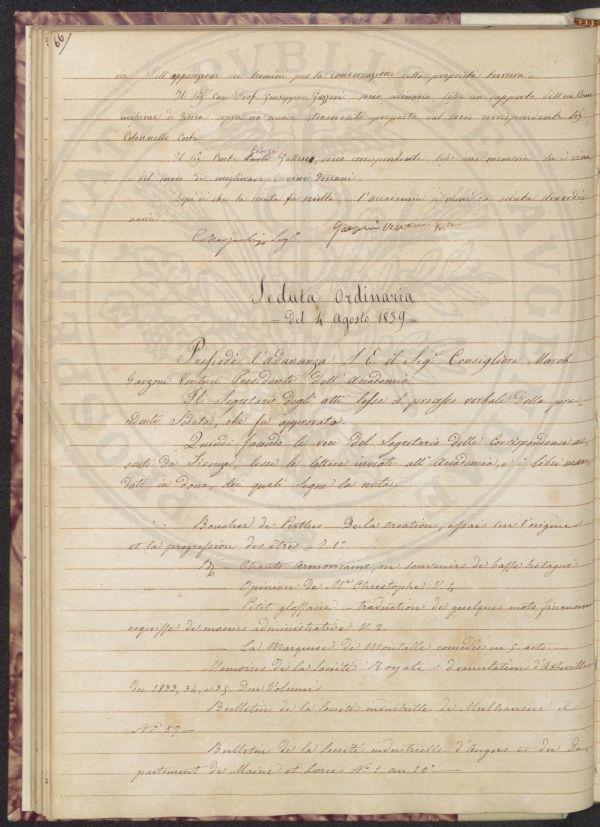 66
dell'apposizione dei termini per la conservazione della proprietà terriera.
Il Sig. Cav. Prof. Giuseppe Gazzeri socio ordinario lesse un rapporto della Com
missione di sopra un nuovo proposto dal socio corrispondente Sig.
Colonnello Costa
Il Sig. Conte Giorgio Galleri, socio corrispondente lesse una memoria su i vini,
e del modo di migliorare i vini Toscani
Dopo di che la seduta fu sciolta, e l'Accademia si adunò in seduta straordi
naria
Seduta Ordinaria
del 4 Agosto 1839
Presiedè l'adunanza S. E. il Sig. Consigliere March
Garzoni Venturi Presidente dell'Accademia.
Il Segretario degli atti lesse il processo verbale della pre
cedente Seduta, che fu approvato.
Quindi facendo le veci del Segretario delle Corrispondenze as
sente da Firenze, lesse le lettere inviate all'Accademia, e i libri man
dati in dono, dei quali segue la nota.
Boucher de Perthes De la creation, essai sur l'origine
et la progression des êtres V. 1°
Chants Armoricains, ou souvenirs de basse bretagne
Opinion de Mr Christophe V. 4
Petit glossaire traduction de quelques mots financiers
esquisse de moeurs administrative V. 2
La Marquise de Montalle comédie en 5 acts
Memoires de la Société Royale d'emulation d'Abbeville
du 1833, 34, e 35 due Volumi
Bulletin de la Societé industrielle de Mulhausen il
N° 57
Bulletin de la Societé industrielle d'Angers et du De
partement de Maine et Loire N° 1 an 10°